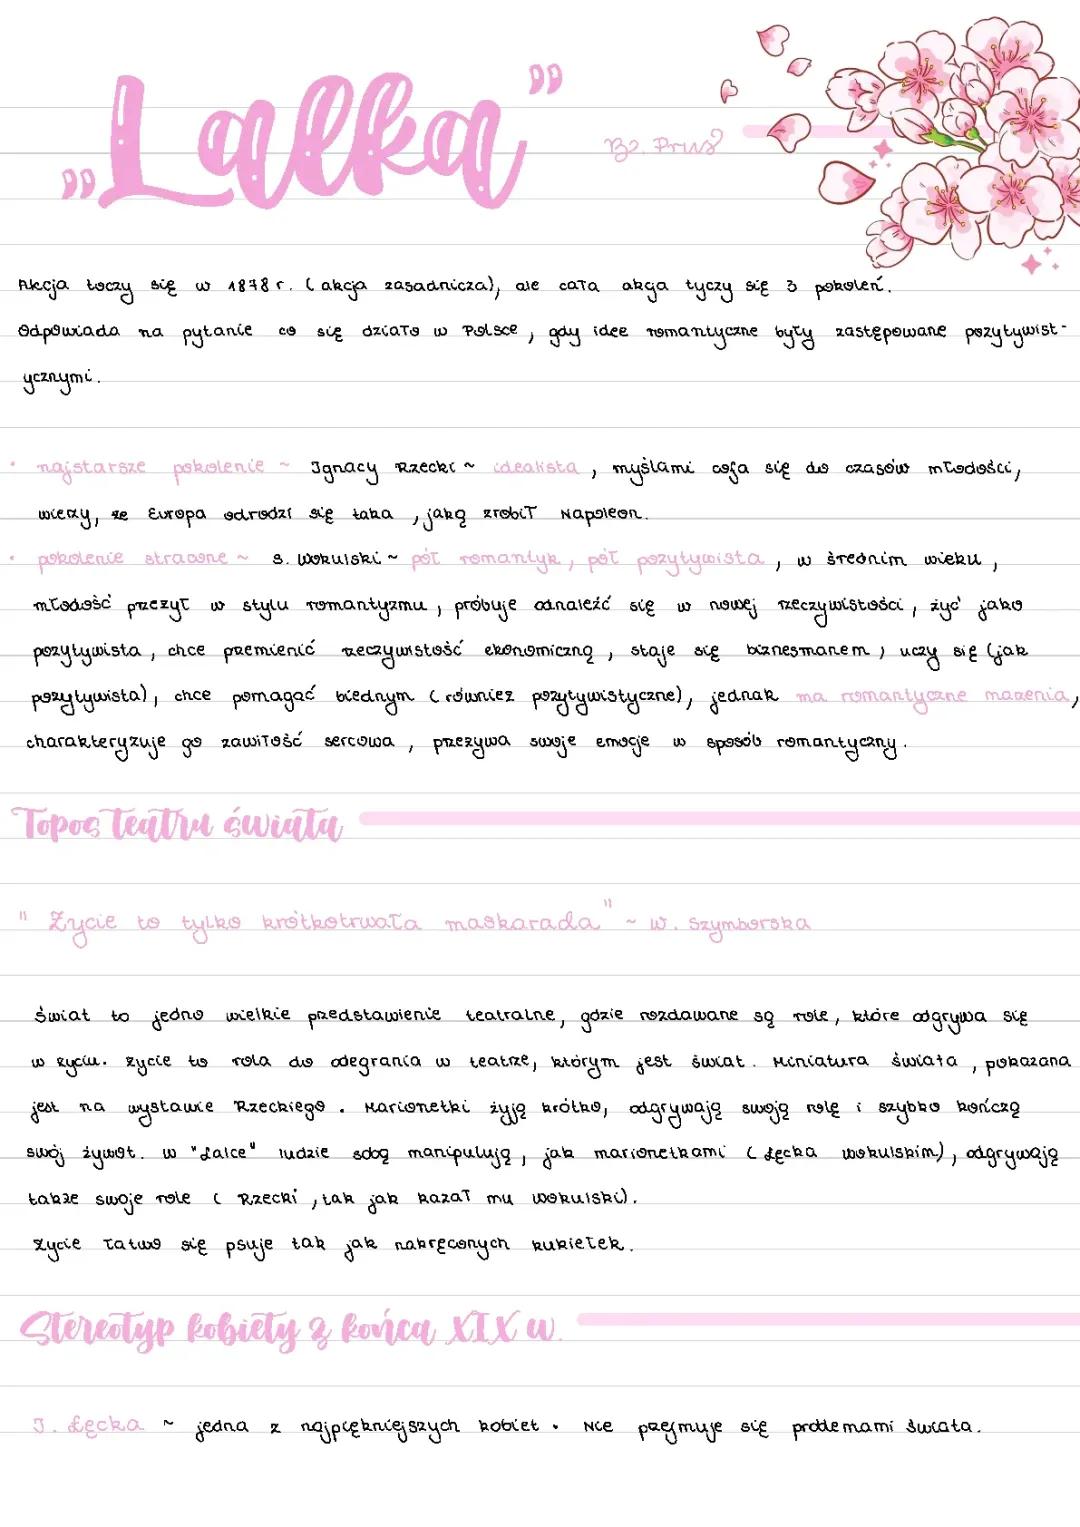 „Lalka”
Bz. Prus
Akcja toczy się w 1878 r. (akcja zasadnicza), ale cała akcja tyczy się 3 pokoleń.
Odpowiada na pytanie co się działo w Polsce, gdy idee romantyczne były zastępowane pozytywist-
ycznymi.
• najstarsze pokolenie ~ Ignacy Rzecki ~ idealista, myślami cofa się do czasów młodości,
wierzy, że Europa odrodzi się taka, jaką zrobił Napoleon.
• pokolenie stracone ~ S. Wokulski ~ pół romantyk, pół pozytywista, w średnim wieku,
młodość przeżył w stylu romantyzmu, próbuje odnaleźć się w nowej rzeczywistości, żyć jako
pozytywista, chce przemienić rzeczywistość ekonomiczną, staje się biznesmanem, uczy się (jak
pozytywista), chce pomagać biednym (również pozytywistyczne), jednak ma romantyczne marzenia,
charakteryzuje go zawiłość sercowa, przeżywa swoje emocje w sposób romantyczny.
Topos teatru świata
" Życie to tylko krótkotrwała maskarada" ~ W. Szymborska
Świat to jedno wielkie przedstawienie teatralne, gdzie rozdawane są role, które odgrywa się
w życiu. Życie to rola do odegrania w teatrze, którym jest świat. Miniatura świata, pokazana
jest na wystawie Rzeckiego. Marionetki żyją krótko, odgrywają swoją rolę i szybko kończą
swój żywot. W "Lalce" ludzie sobą manipulują, jak marionetkami (Łęcka Wokulskim), odgrywają
także swoje role (Rzecki, tak jak kazał mu Wokulski).
Życie łatwo się psuje tak jak nakręconych kukiełek.
Stereotyp kobiety z końca XIX w.
I. Łęcka ~ jedna z najpiękniejszych kobiet. Nie przejmuje się problemami świata.